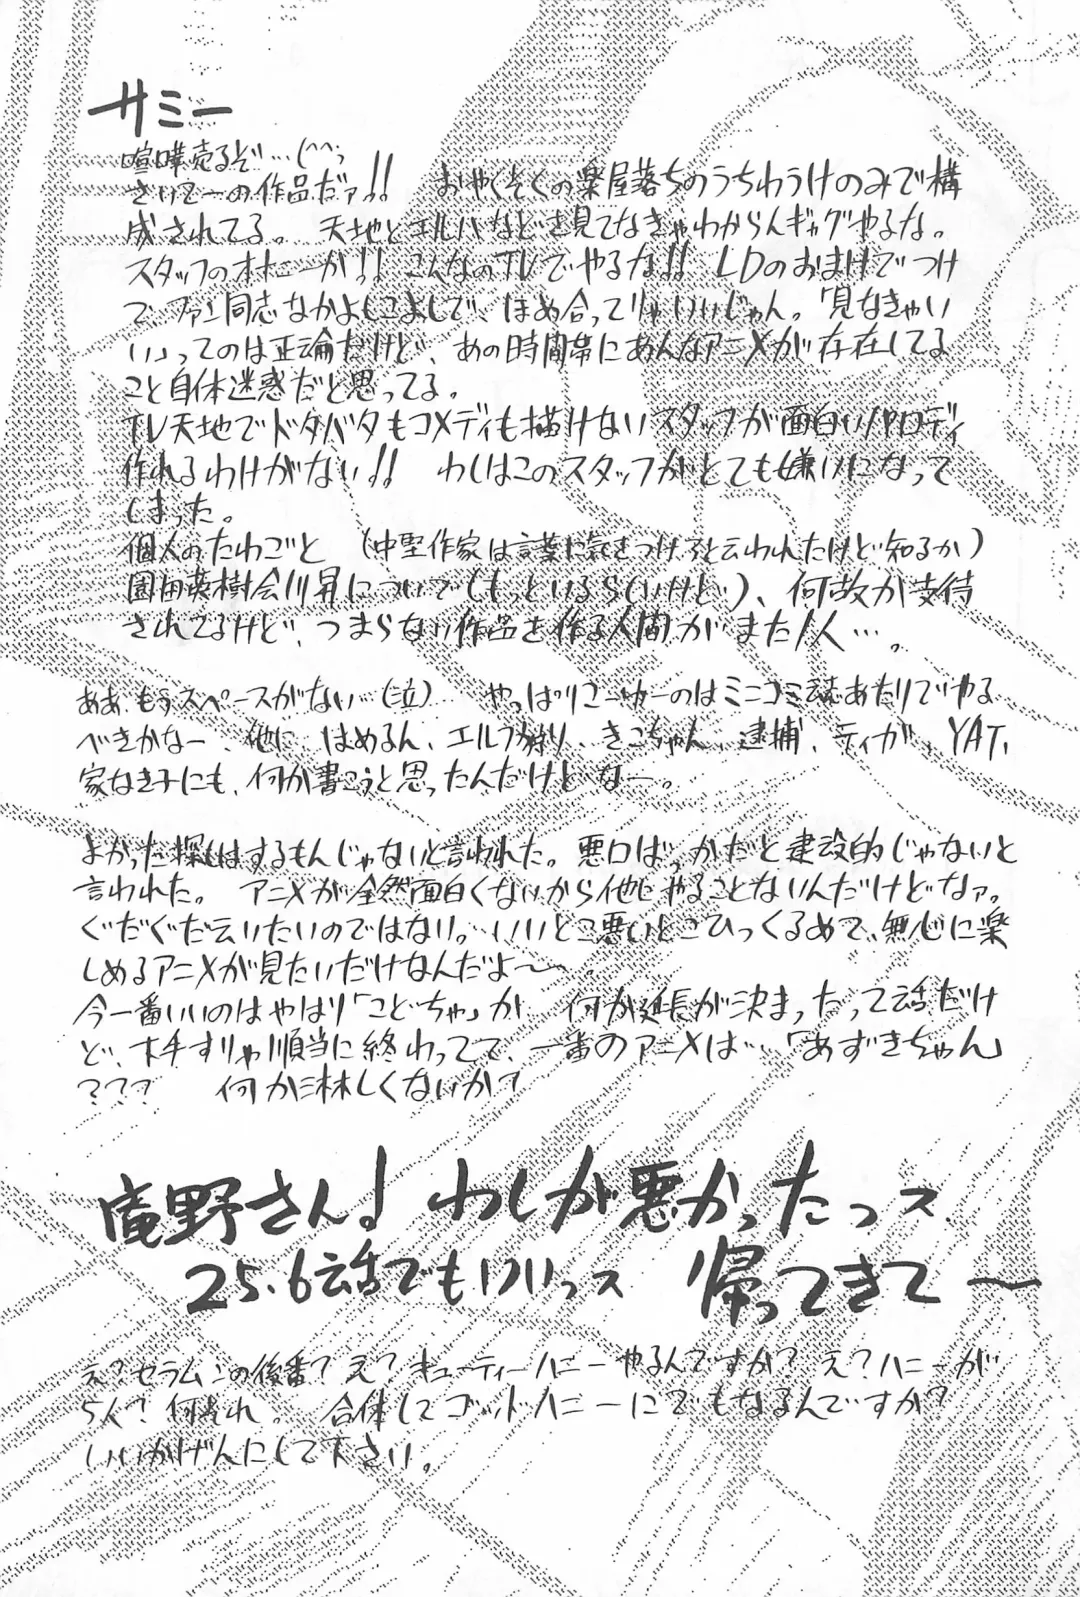 サミー
喧嘩売るぞ…(^^)
さいてーの作品だァ!! おやくそくの楽屋落ちのうちわうけのみで構
成されてる。 天地とエルハなどを見てなきゃわからんギャグやるな。
スタッフのオナニーか!! こんなのTVでやるな!! LDのおまけでつけ
て、ファン同志なかよしこよしで、ほめ合ってりゃいいじゃん。「見なきゃい
い」ってのは正論だけど、あの時間帯にあんなアニメが存在してる
こと自体迷惑だと思ってる。
TV天地でドタバタもコメディも描けないスタッフが面白いパロディ
作れるわけがない!! わしはこのスタッフがとても嫌いになって
しまった。
個人のたわごと (中堅作家は言葉に気をつけろと云われたけど知るか)
園田英樹会川昇について(もっといるらしいけど)、何故か支持
されてるけど、つまらない作品を作る人間がまた1人…。
ああ、もうスペースがない…(泣) やっぱりこーゆーのはミニコミ誌あたりでやる
べきかなー、他に はめるん、エルフ狩り、きこちゃん、逮捕、ティガ、YAT、
家なき子にも、何か書こうと思ったんだけどなー。
よかった探しはするもんじゃないと言われた。悪口ばっかだと建設的じゃないと
言われた。 アニメが全然面白くないから他にやることないんだけどなァ。
ぐだぐだ云いたいのではない。…いいとこ悪いとこひっくるめて、無心に楽
しめるアニメが見たいだけなんだよ〜〜。
今一番いいのはやはり「こどちゃ」か 何か延長が決まったって話だけ
ど、ホネすりゃ順当に終わってて、一番のアニメは…「あずきちゃん」
??? 何か淋しくないか?
庵野さん! わしが悪かったっス
25.6話でもいいっス 帰ってきて〜
え?セラムンの後番? え? キューティーハニーやるんですか? え?ハニーが
5人?何それ。 合体してゴッドハニーにでもなるんですか?
いいかげんにして下さい。